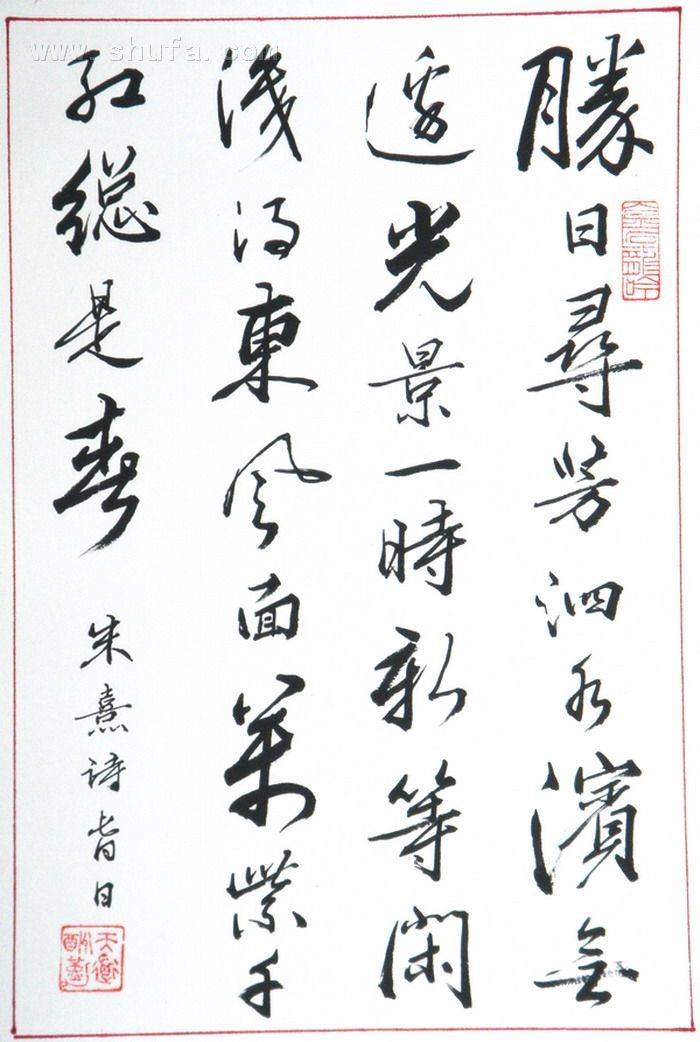 www.shufa.com
勝日尋芳泗水濱無
邊光景一時新等閑
識得東風面萬紫千
紅總是春
朱熹詩春日